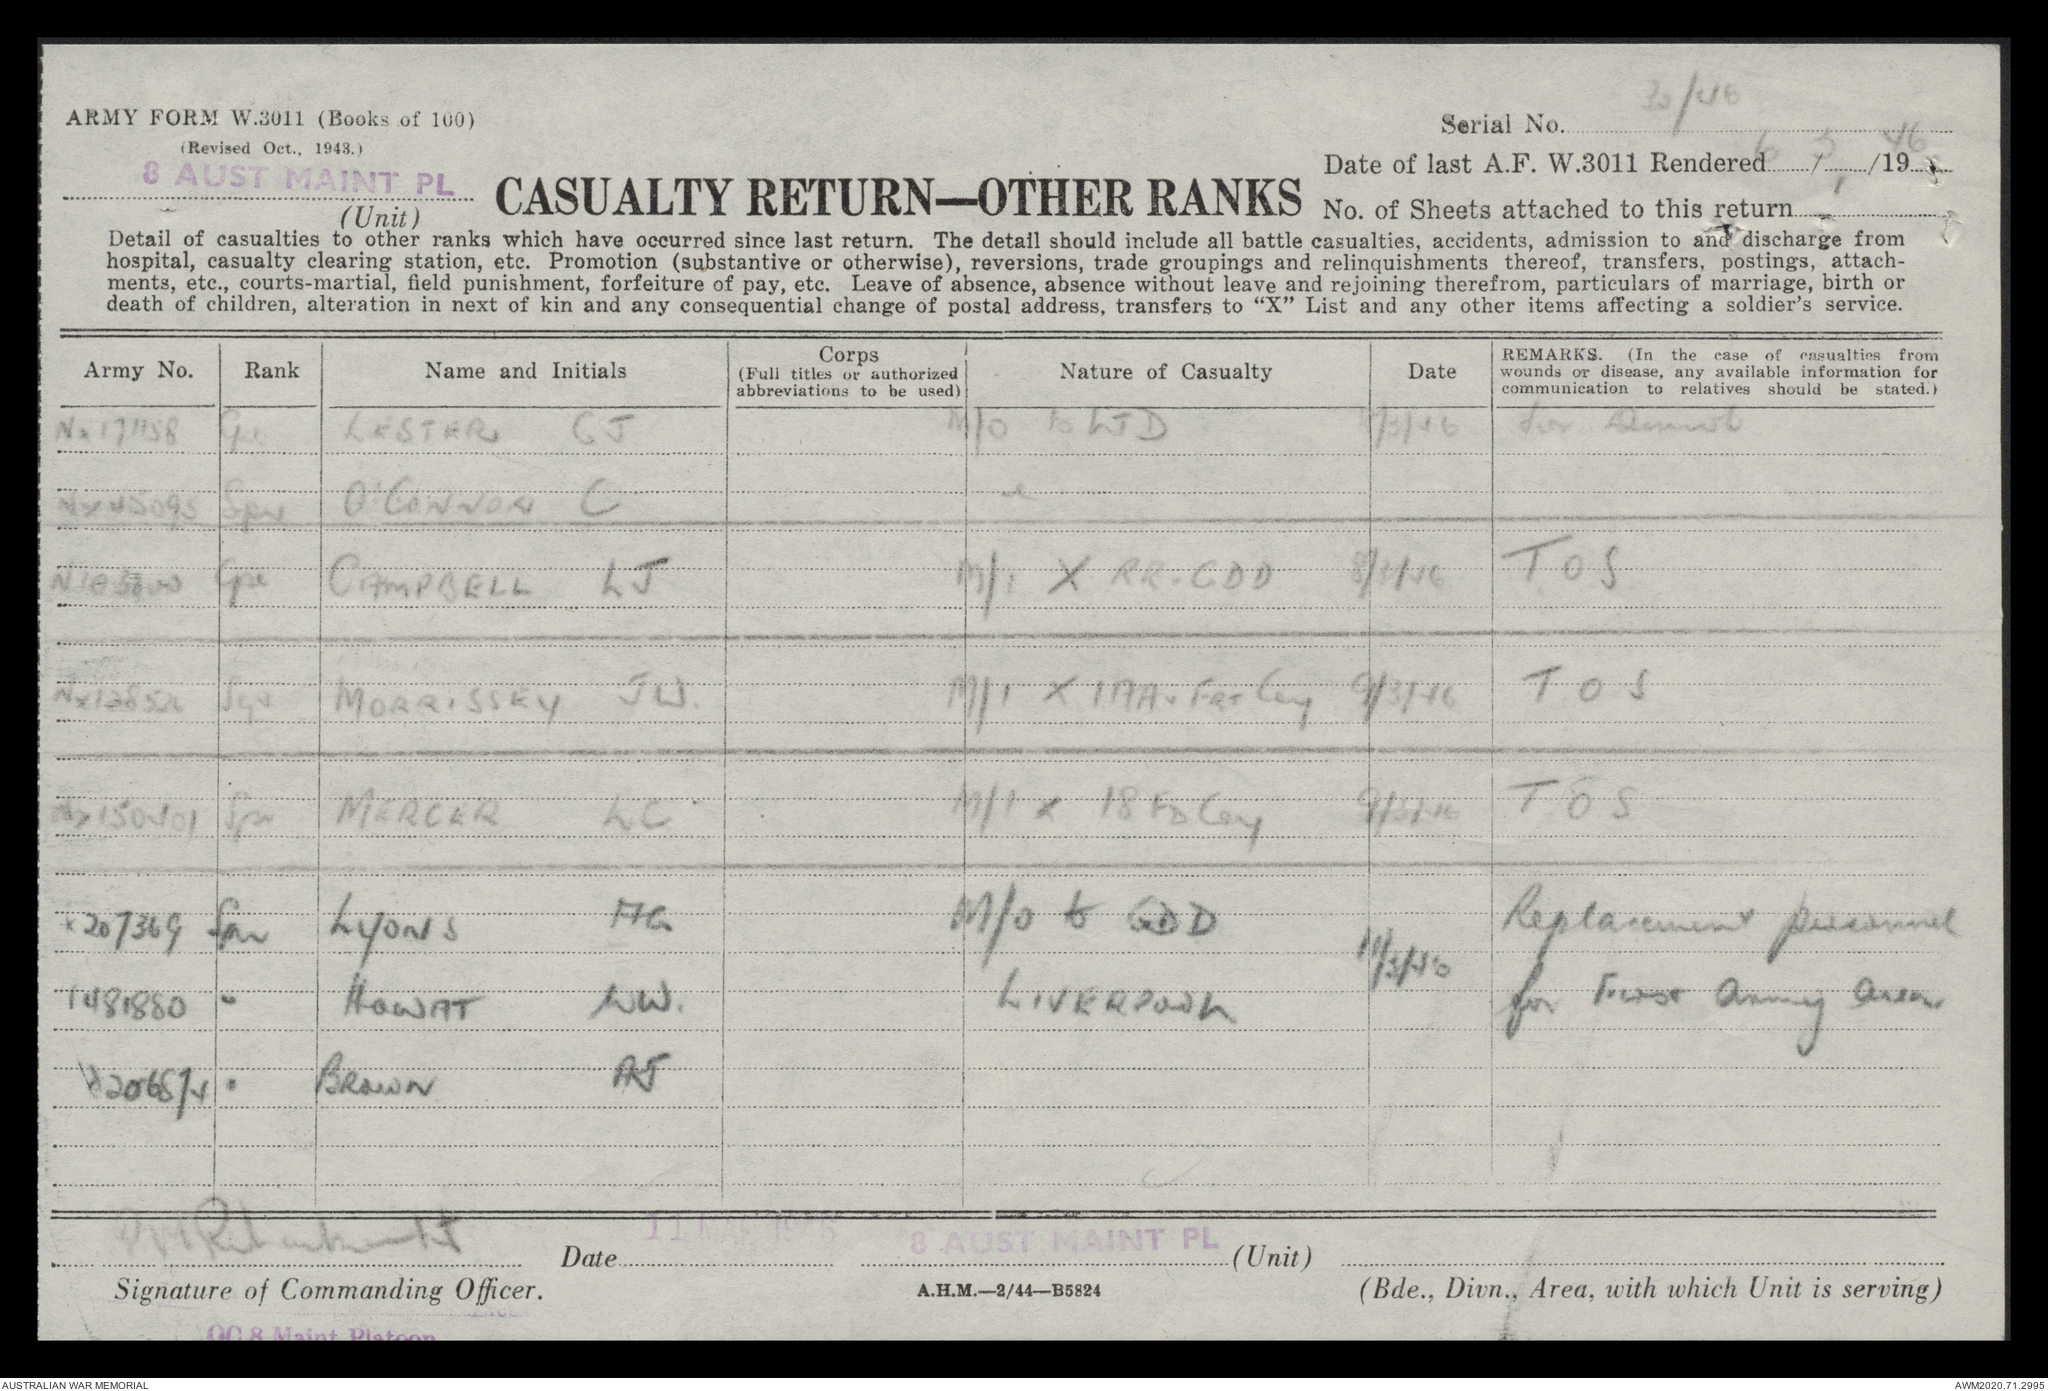 ARMY FORM W.3011 (Books of 100)
(Revised Oct., 1943.)
8 AUST MAINT PL
(Unit)
CASUALTY RETURN—OTHER RANKS
Serial No. 30/46
Date of last A.F. W.3011 Rendered 6/3/1946
No. of Sheets attached to this return
Detail of casualties to other ranks which have occurred since last return. The detail should include all battle casualties, accidents, admission to and discharge from
hospital, casualty clearing station, etc. Promotion (substantive or otherwise), reversions, trade groupings and relinquishments thereof, transfers, postings, attach-
ments, etc., courts-martial, field punishment, forfeiture of pay, etc. Leave of absence, absence without leave and rejoining therefrom, particulars of marriage, birth or
death of children, alteration in next of kin and any consequential change of postal address, transfers to "X" List and any other items affecting a soldier's service.
Army No. Rank Name and Initials Corps (Full titles or authorized abbreviations to be used) Nature of Casualty Date REMARKS. (In the case of casualties from wounds or disease, any available information for communication to relatives should be stated.)
Nx171158 Cpl LESTER CJ M/O to LTD /3/46 for
Spr O'CONNOR C
Cpl CAMPBELL LJ M/I X RR. GDD 8/3/46 TOS
MORRISSEY JW. M/I X 9/3/46 TOS
Spr MERCER LC M/I x 18 FD Coy 9/3/46 TOS
207369 Spr LYONS AG M/O to GDD 11/3/46 Replacement personnel
481880 " HOWAT WW. LIVERPOOL for First Army Area
" BROWN AJ
Date 11 MAR 1946 8 AUST MAINT PL (Unit)
Signature of Commanding Officer. A.H.M.—2/44—B5824 (Bde., Divn., Area, with which Unit is serving)
OC 8 Maint Platoon
AUSTRALIAN WAR MEMORIAL AWM2020.71.2995